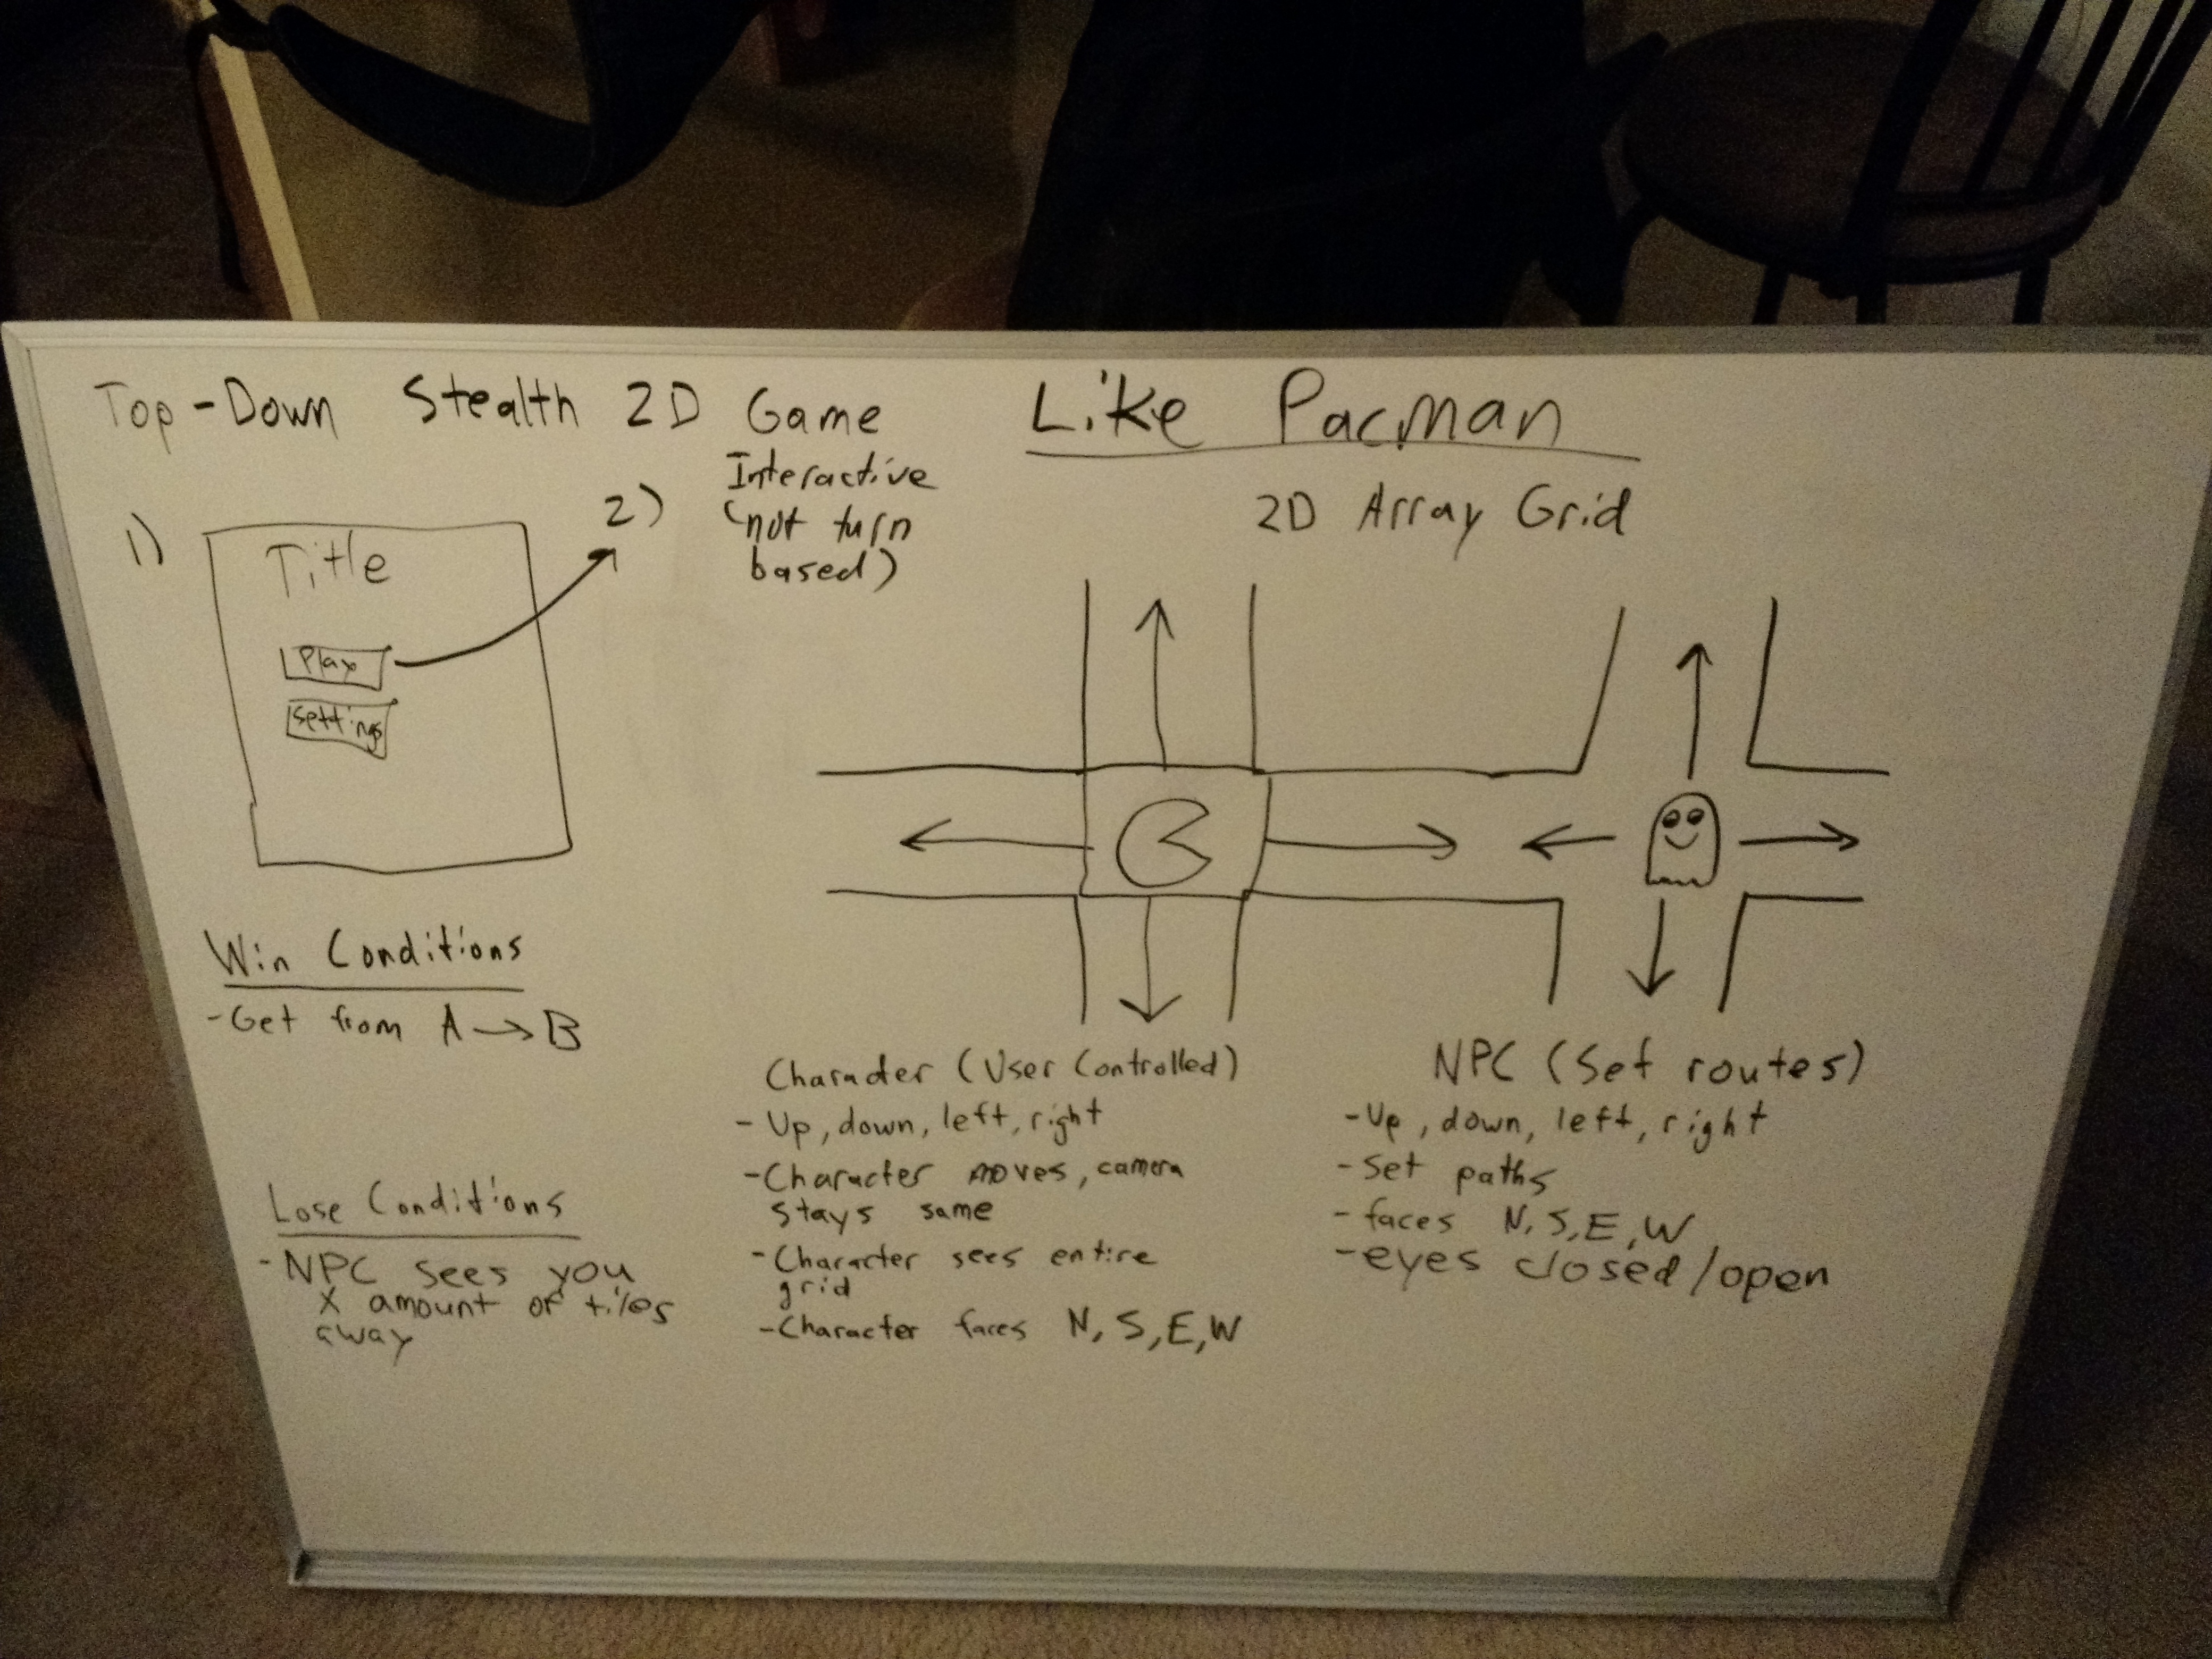 Top-Down Stealth 2D Game
Like Pacman
Interactive
(not turn
based)
2D Array Grid
1)
Title
Play
Settings
2)
Win Conditions
-Get from A → B
Lose Conditions
-NPC sees you
X amount of tiles
away
Character (User Controlled)
- Up, down, left, right
-Character moves, camera
stays same
-Character sees entire
grid
-Character faces N, S, E, W
NPC (Set routes)
-Up, down, left, right
-Set paths
-faces N, S, E, W
-eyes closed/open